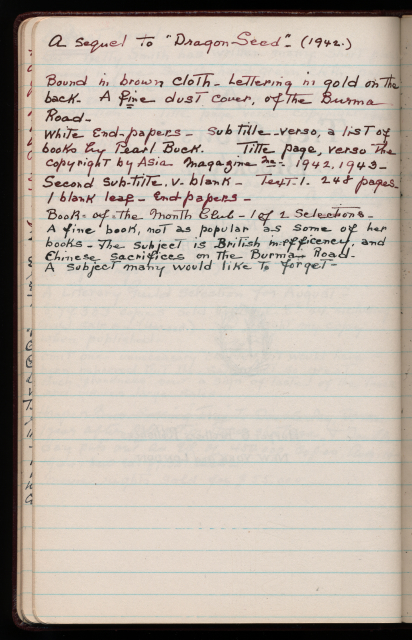 A sequel to "Dragon-Seed". (1942.)
Bound in brown cloth - Lettering in gold on the
back. A fine dust cover, of the Burma
Road.
White End-papers - Sub title-verso, a list of
books by Pearl Buck. Title page, verso The
copyright by Asia Magazine Inc - 1942.1943 -
Second Sub-title. v. blank - Text. 1. 248 pages -
1 blank leaf - End papers -
Book-of-the Month Club - 1 of 2 Selections.
A fine book, not as popular as some of her
books - The subject is British inefficency, and
Chinese sacrifices on the Burma Road.
A subject many would like to forget -